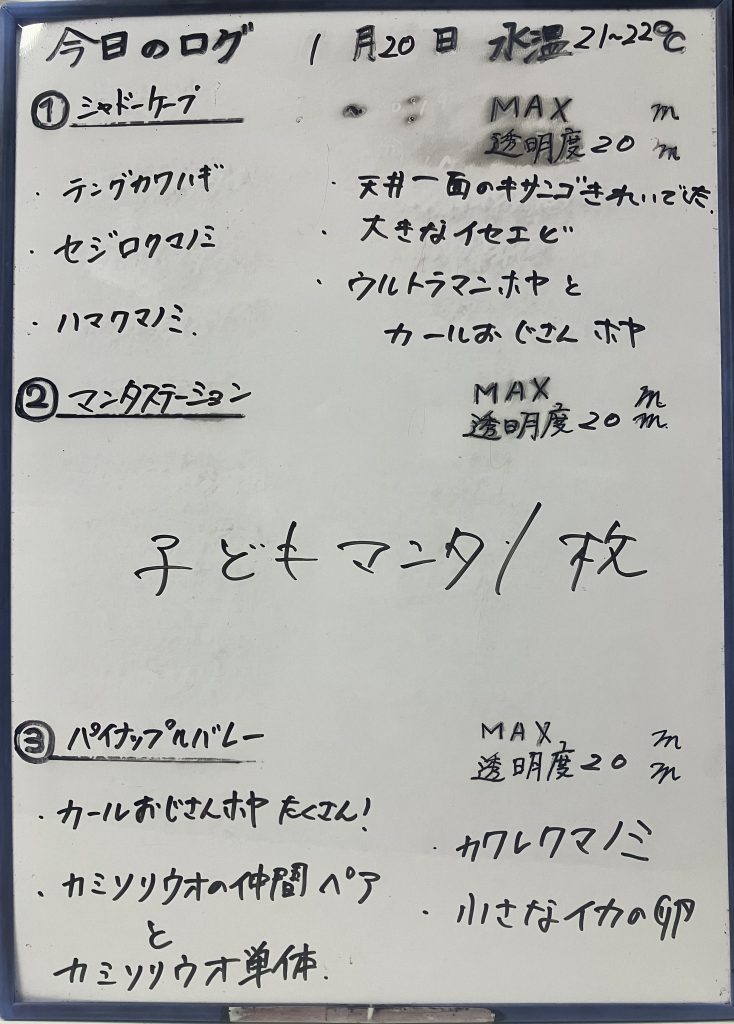 今日のログ 1月20日 水温21~22℃
① シャドーケープ MAX m
透明度20m
・テングカワハギ
・セジロクマノミ
・ハマクマノミ.
・天井一面のキサンゴきれいでした.
・大きなイセエビ
・ウルトラマンホヤと
カールおじさんホヤ
② マンタステーション MAX m
透明度20m.
子どもマンタ1枚
③ パイナップルバレー MAX m
透明度20m
・カールおじさんホヤたくさん!
・カミソリウオの仲間ペア
と
カミソリウオ単体.
・カクレクマノミ
・小さなイカの卵